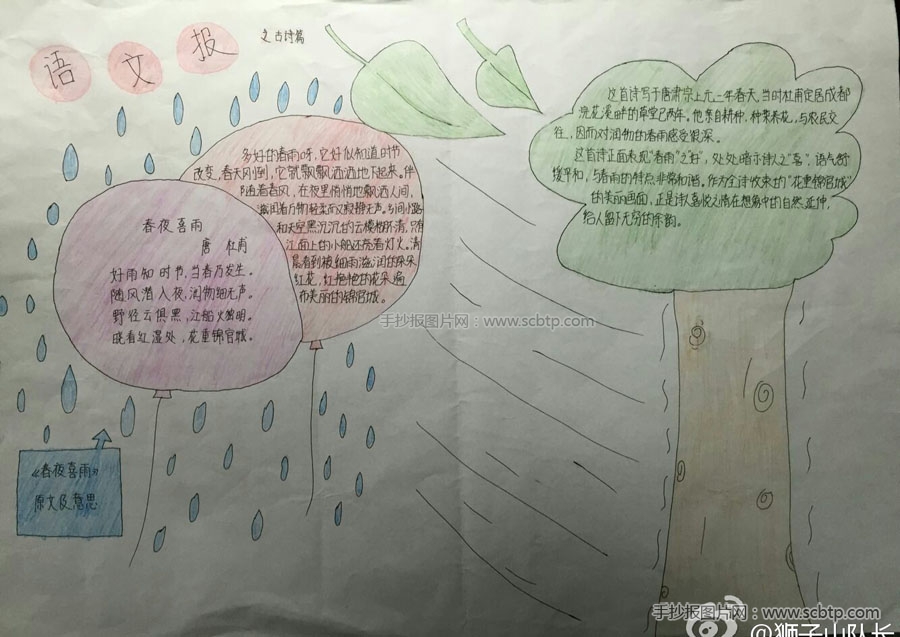 语文报
之古诗篇
春夜喜雨
唐 杜甫
好雨知时节,当春乃发生。
随风潜入夜,润物细无声。
野径云俱黑,江船火独明。
晓看红湿处,花重锦官城。
多好的春雨呀,它好似知道时节
改变,春天刚到,它就飘飘洒洒地下起来。伴
随着春风,在夜里悄悄地飘洒人间,
滋润着万物轻柔而又寂静无声。乡间小路
和天空黑沉沉的云模糊不清,只有
江面上的小船还亮着灯火。清
晨看到被细雨滋润的朵朵
红花,红艳艳的花朵遍
布美丽的锦官城。
这首诗写于唐肃宗上元二年春天,当时杜甫定居成都
浣花溪畔的草堂已两年。他亲自耕种,种菜养花,与农民交
往,因而对润物的春雨感受很深。
这首诗正面表现“春雨”之“好”,处处暗示诗人之“喜”,语气舒
缓平和,与春雨的特点非常和谐。作为全诗收束的“花重锦官城”
的美丽画面,正是诗人喜悦之情在想象中的自然延伸,
给人留下无穷的余韵。
《春夜喜雨》
原文及意思
手抄报图片网:www.scbtp.com
手抄报图片网:www.scbtp.com
@狮子山队长